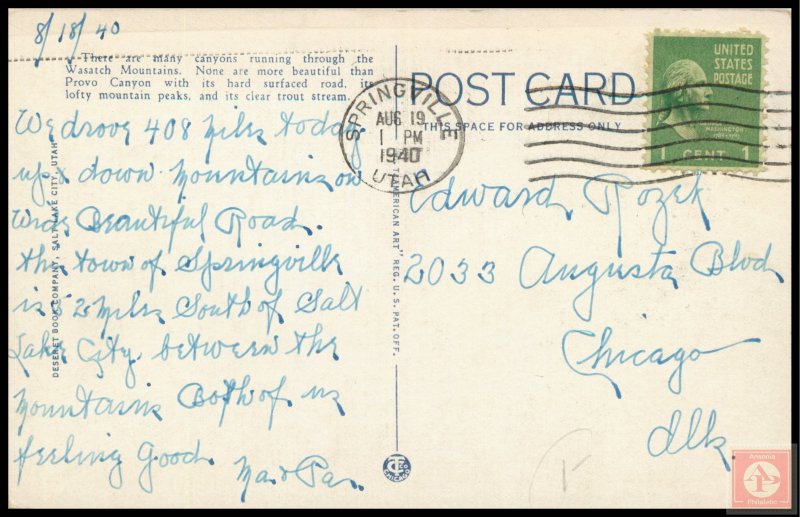 8/18/40
There are many canyons running through the
Wasatch Mountains. None are more beautiful than
Provo Canyon with its hard surfaced road, its
lofty mountain peaks, and its clear trout stream.
We drove 408 miles today
up & down mountains on
Beautiful Road.
the town of Springville
is miles South of Salt
Lake City. between the
mountains Both of us
feeling Good.
Ma & Pa.
DESERET BOOK COMPANY, SALT LAKE CITY, UTAH
POST CARD
THIS SPACE FOR ADDRESS ONLY
"AMERICAN ART" REG. U.S. PAT. OFF.
SPRINGVILLE
AUG 19
1 PM
1940
UTAH
UNITED
STATES
POSTAGE
WASHINGTON
1 CENT 1
Edward Rozek
2033 Augusta Blvd
Chicago
Ills.
CHICAGO
Ansonia
Philatelic